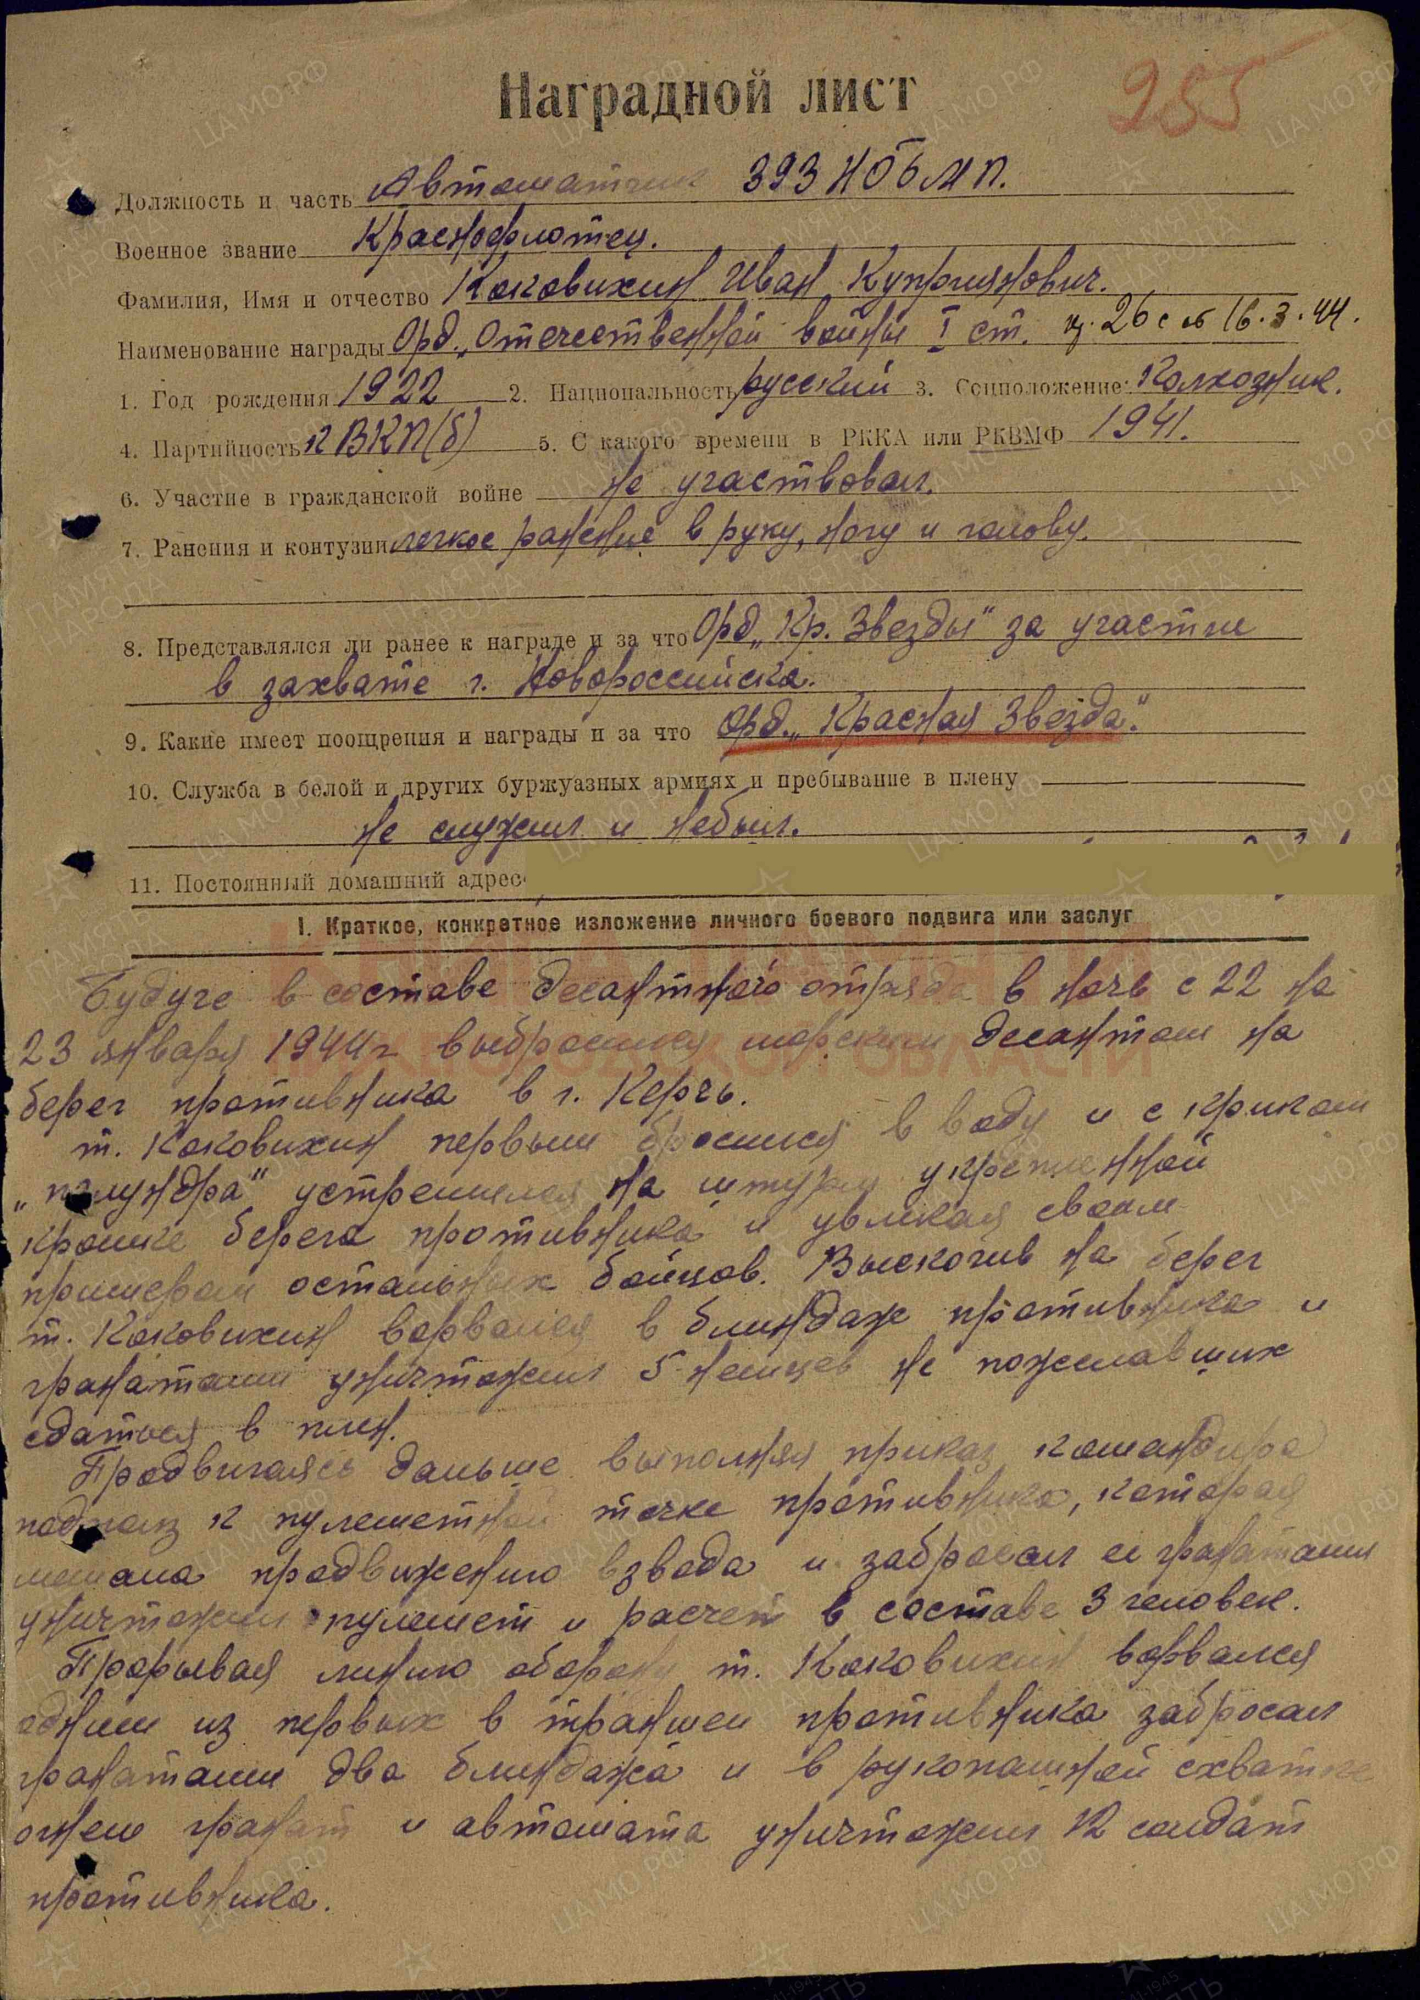 255
Наградной лист
Должность и часть Автоматчик 393 НОБМП.
Военное звание Краснофлотец.
Фамилия, Имя и отчество Каковихин Иван Куприянович.
Наименование награды Орд. „Отечественной войны I ст. пр. 26с от 16.3.44.
1. Год рождения 1922 2. Национальность русский 3. Соцположение: Колхозник.
4. Партийность к ВКП(б) 5. С какого времени в РККА или РКВМФ 1941.
6. Участие в гражданской войне не участвовал.
7. Ранения и контузии легкое ранение в руку, ногу и голову.
8. Представлялся ли ранее к награде и за что Орд „Кр. Звезды" за участие
в захвате г. Новороссийска.
9. Какие имеет поощрения и награды и за что орд. „Красная Звезда".
10. Служба в белой и других буржуазных армиях и пребывание в плену
не служил и небыл.
11. Постоянный домашний адрес
I. Краткое, конкретное изложение личного боевого подвига или заслуг
Будуче в составе десантного отряда в ночь с 22 на
23 января 1944г выбросился морским десантом на
берег противника в г. Керчь.
т. Каковихин первым бросился в воду и с криком
„полундра" устремился на штурм укрепленной
кромке берега противника и увлекая своим
примером остальных бойцов. Выскочив на берег
т. Каковихин ворвался в блиндаж противника и
гранатами уничтожил 5 немцев не пожелавших
сдаться в плен.
Продвигаясь дальше выполняя приказ командира
подполз к пулеметной точке противника, которая
мешала продвижению взвода и забросал ее гранатами
уничтожил пулемет и расчет в составе 3 человек.
Прорывая линию обороны т. Каковихин ворвался
одним из первых в траншеи противника забросал
гранатами два блиндажа и в рукопашной схватке
огнем гранат и автомата уничтожил 12 солдат
противника.
КНИГА ПАМЯТИ
НИЖЕГОРОДСКОЙ ОБЛАСТИ
ЦАМО.РФ
ПАМЯТЬ НАРОДА